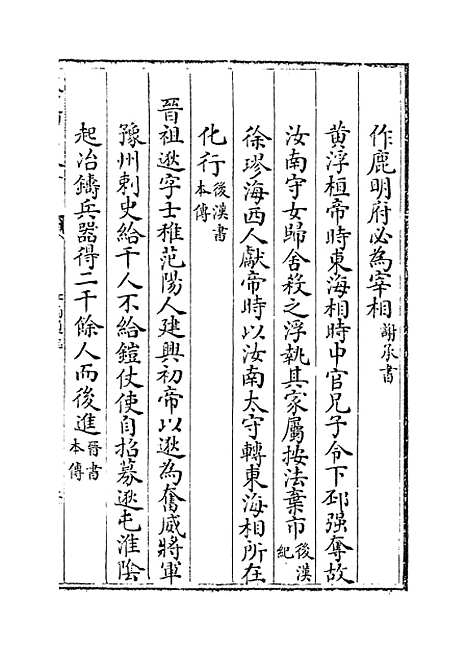 作鹿明府必為宰相謝承書
黄浮桓帝時東海相時中官兄子令下邳强奪故
汝南守女歸舍殺之浮執其家屬按法棄市後漢紀
徐璆海西人獻帝時以汝南太守轉東海相所在
化行後漢書本傳
晉祖逖字士稚范陽人建興初帝以逖為奮威將軍
豫州刺史給千人不給鎧仗使自招募逖屯淮陰
起冶鑄兵器得二千餘人而後進晉書本傳